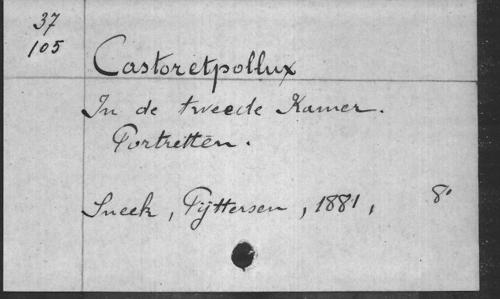 37
105
Castoretpollux
In de tweede Kamer.
Portretten.
Sneek, Pijttersen, 1881, 8°